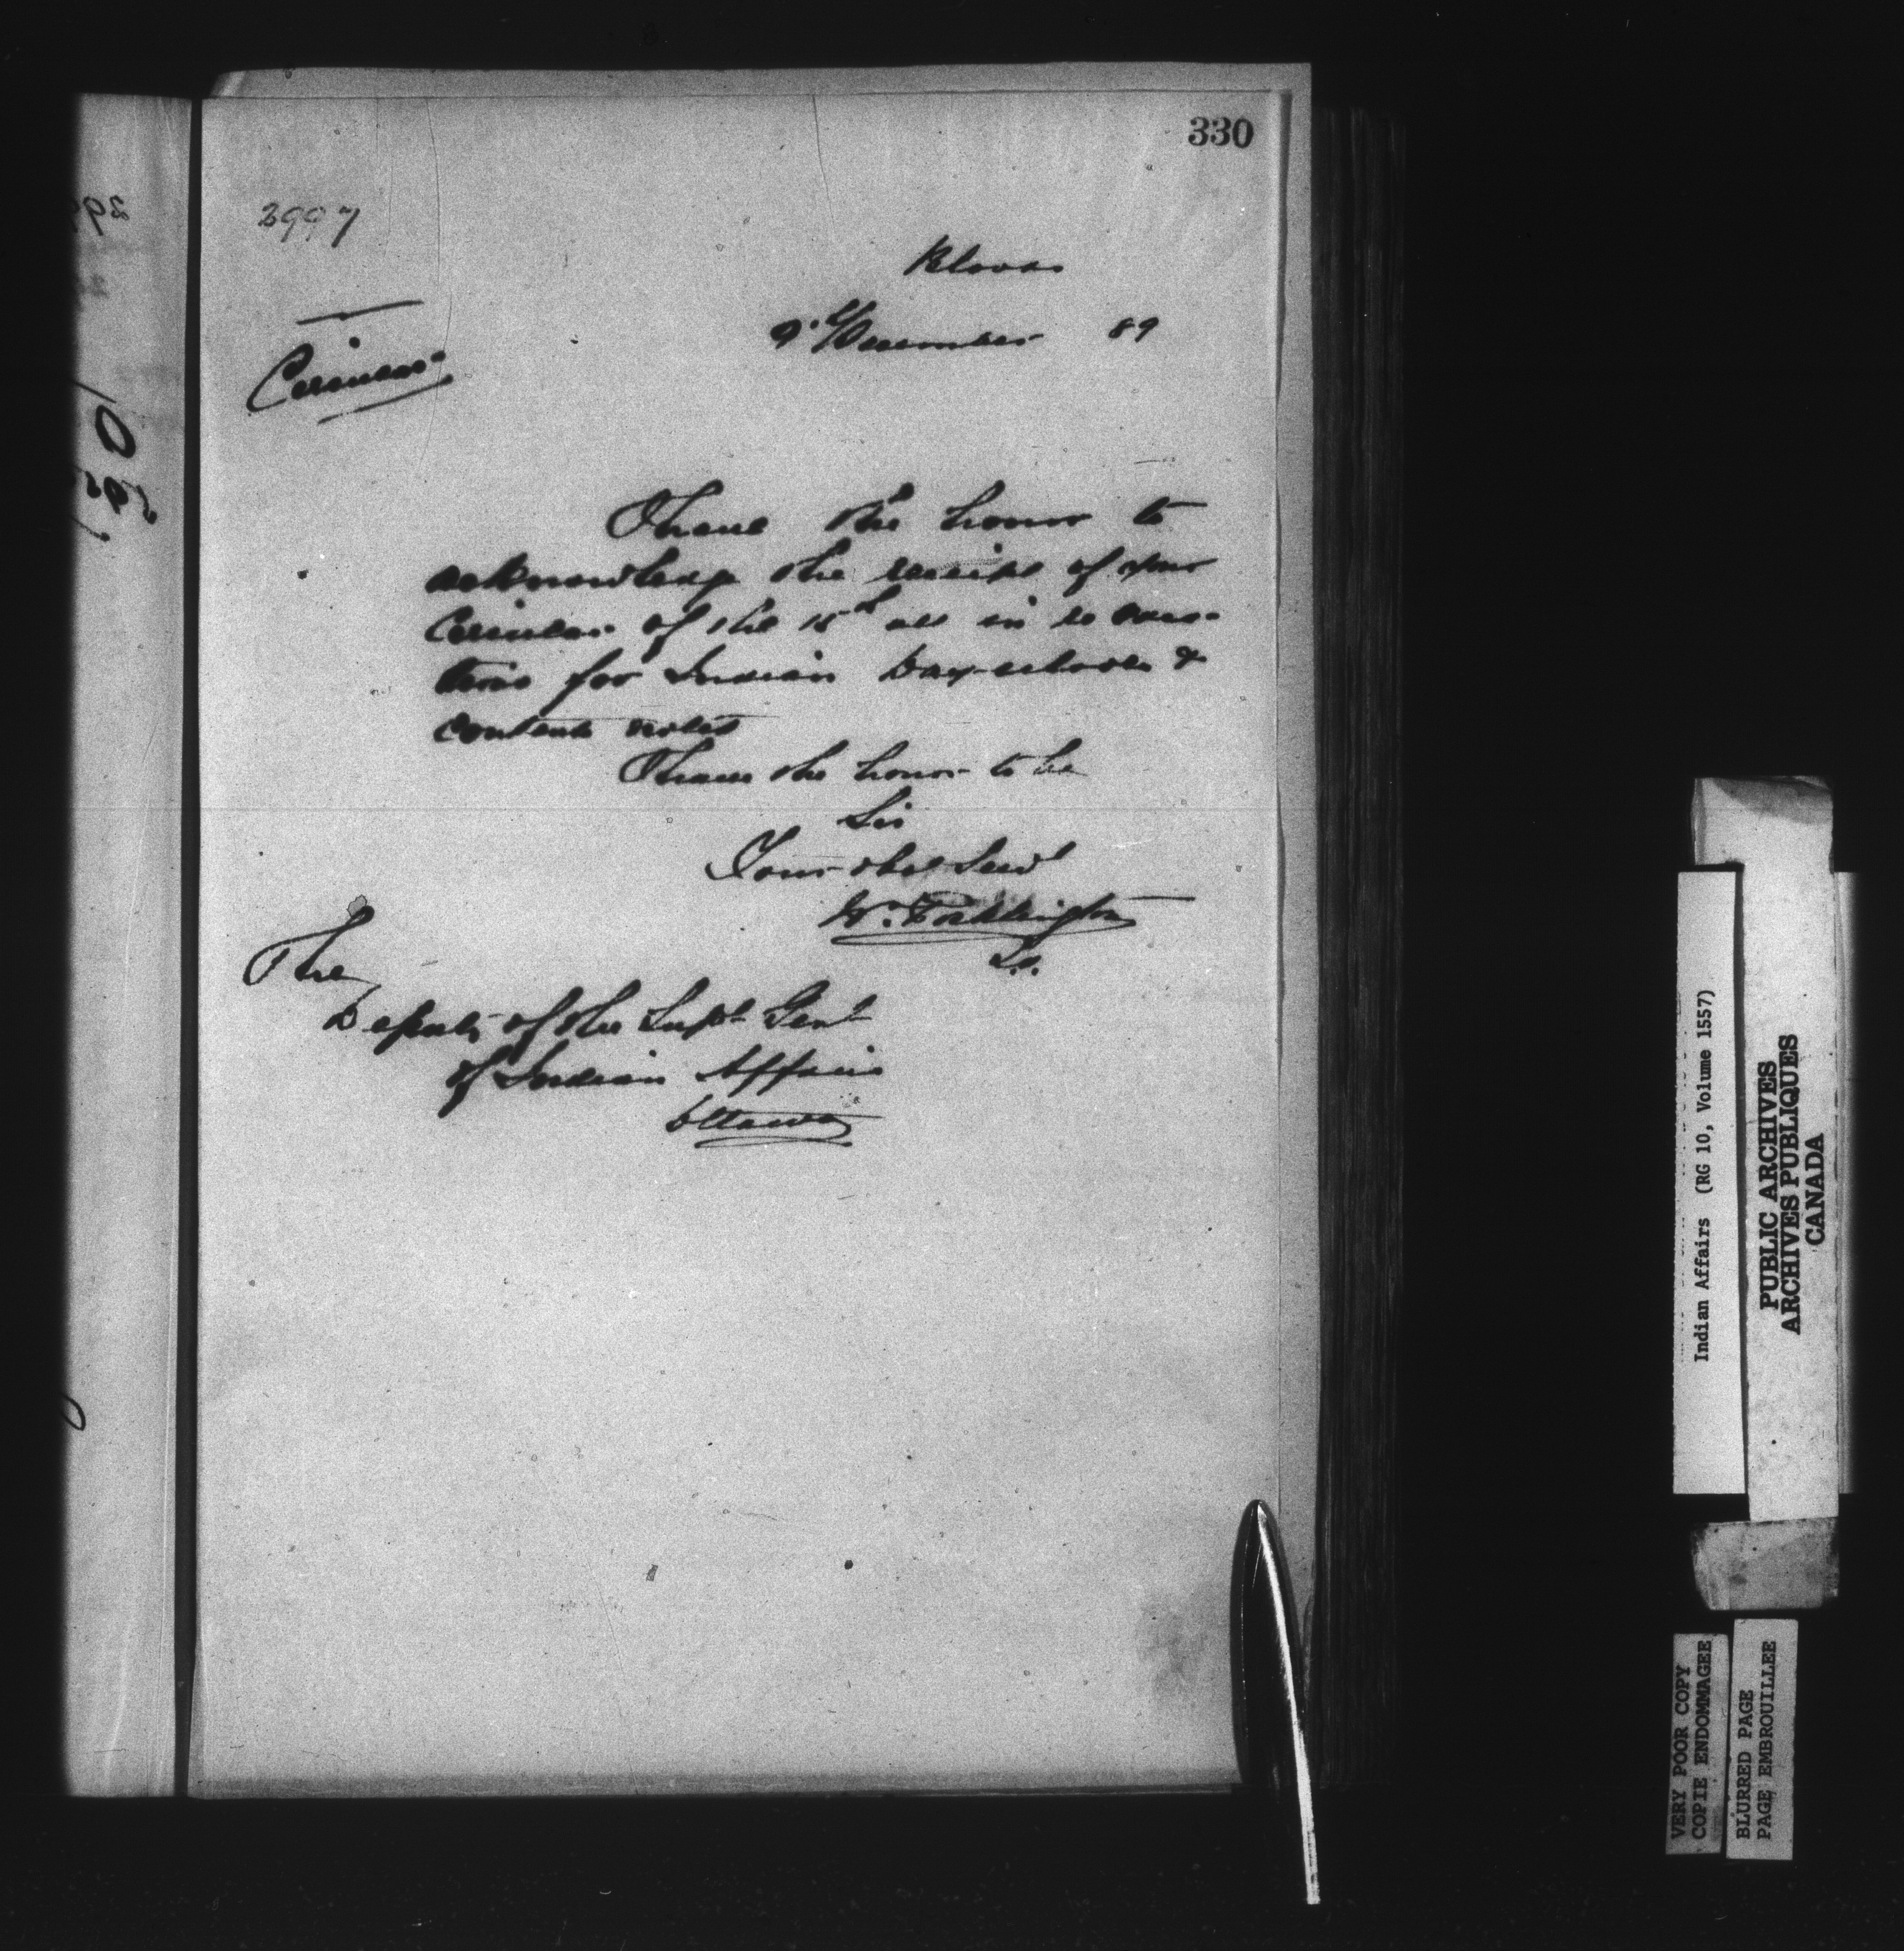 330
2997
Bloods
9th December 89
Circular
I have the honor to
acknowledge the receipt of your
Circular of the 15th ult in re
for Indian Day-schools &
contents noted
I have the honor to be
Sir
Your obed Servt
Wm. Pocklington
The
Deputy of the Supt Genl
of Indian Affairs
Ottawa
Indian Affairs (RG 10, Volume 1557)
PUBLIC ARCHIVES
ARCHIVES PUBLIQUES
CANADA
VERY POOR COPY
COPIE ENDOMMAGEE
BLURRED PAGE
PAGE EMBROUILLEE